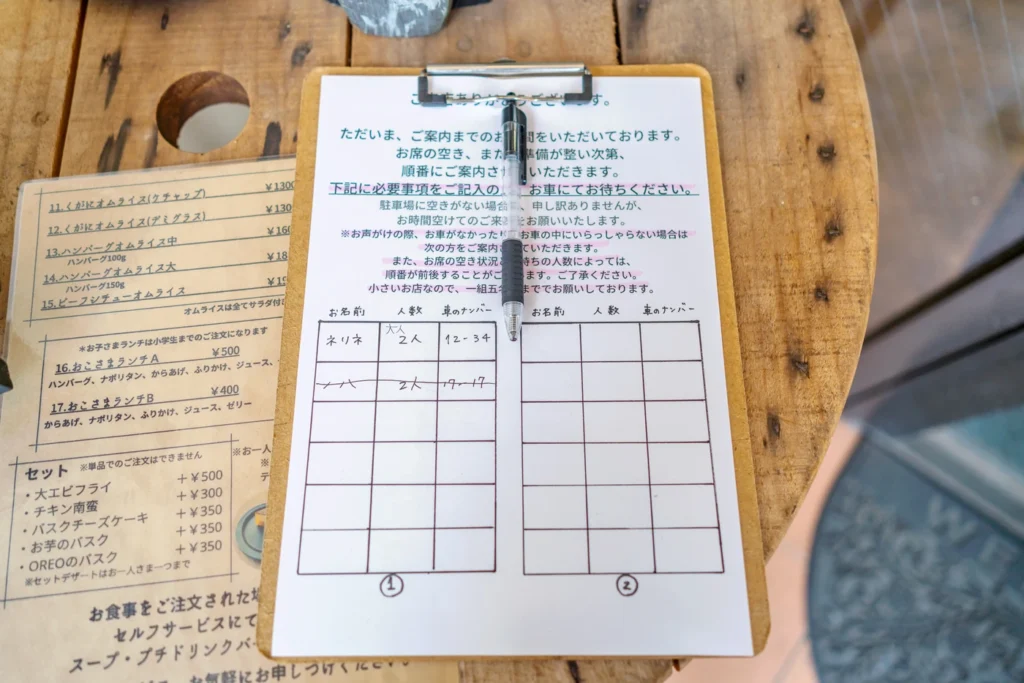 11.くがにオムライス(ケチャップ) ¥1300
12.くがにオムライス(デミグラス) ¥130
13.ハンバーグオムライス中 ¥160
ハンバーグ100g
14.ハンバーグオムライス大 ¥18
ハンバーグ150g
15.ビーフシチューオムライス ¥19
オムライスは全てサラダ付
*お子さまランチは小学生までのご注文になります
16.おこさまランチA ¥500
ハンバーグ、ナポリタン、からあげ、ふりかけ、ジュース、
17.おこさまランチB ¥400
からあげ、ナポリタン、ふりかけ、ジュース、ゼリー
セット ※単品でのご注文はできません
・大エビフライ +¥500
・チキン南蛮 +¥300
・バスクチーズケーキ +¥350
・お芋のバスク +¥350
・OREOのバスク +¥350
※セットデザートはお一人さま一つまで
※お一人
※
デ
お食事をご注文された
セルフサービスにて
スープ・プチドリンクバー
お気軽にお申しつけください
ありがとうございます。
ただいま、ご案内までのお間をいただいております。
お席の空き、また準備が整い次第、
順番にご案内させいただきます。
下記に必要事項をご記入の、お車にてお待ちください。
駐車場に空きがない場合、申し訳ありませんが、
お時間空けてのご来をお願いいたします。
※お声がけの際、お車がなかったりお車の中にいらっしゃらない場合は
次の方をご案内ていただきます。
また、お席の空き状況と待ちの人数によっては、
順番が前後することがございます。ご了承ください。
小さいお店なので、一組五名まででお願いしております。
お名前 人数 車のナンバー
ネリネ 大人2人 12-34
ノハ 2人 17-17
①
お名前 人数 車のナンバー
②